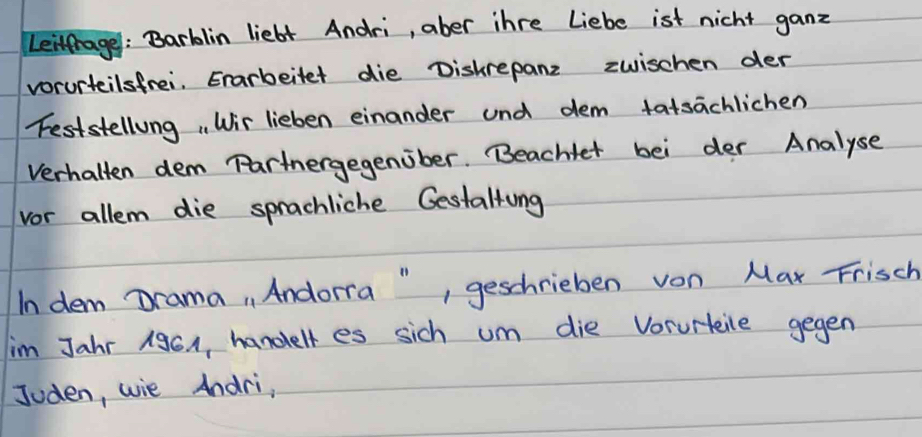 Leitfrage: Barblin liebt Andri, aber ihre Liebe ist nicht ganz
vorurteilsfrei. Erarbeitet die Diskrepanz zwischen der
Feststellung „Wir lieben einander und dem tatsächlichen
Verhalten dem Partnergegenüber. Beachtet bei der Analyse
vor allem die sprachliche Gestaltung
In dem Drama „Andorra", geschrieben von Max Frisch
im Jahr 1961, handelt es sich um die Vorurteile gegen
Juden, wie Andri,